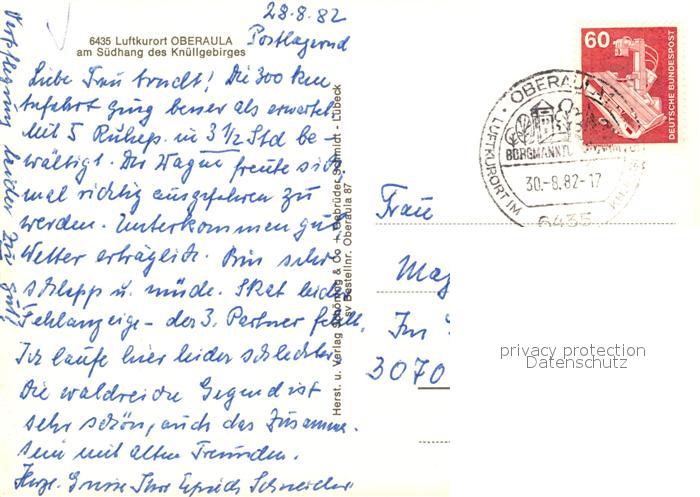 28.8.82
Postlagernd
6435 Luftkurort OBERAULA
am Südhang des Knüllgebirges
Liebe Frau! Die 300 km
Anfahrt ging besser als erwartet
Mit 5 Ruhep. in 3 1/2 Std be-
wältigt. Der Wagen freute sich
mal richtig ausgefahren zu
werden. Unterkommen gut
Wetter erträglich. Bin sehr
schlapp u. müde. Skat leider
Fehlanzeige - der 3. Partner fehlt.
Ich laufe hier leider schlechter
Die waldreiche Gegend ist
sehr schön, auch das Zusamme-
sein mit alten Freunden.
Herzl. Grüsse Ihre Schneider
Verpflegung leider zu gut
Herst. u. Verlag Schöning & Co + Gebrüder Schmidt - Lübeck
sv Bestellnr. Oberaula 87
60
DEUTSCHE BUNDESPOST
OBERAULA
LUFTKURORT IM
30.-8.82-17
6435
Frau
Mag
Im
3070
privacy protection
Datenschutz